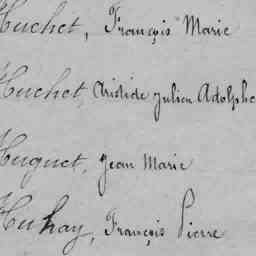 Huchet, François Marie
Huchet, Aristide Julien Adolphe
Huguet, Jean Marie
Huhay, François Pierre